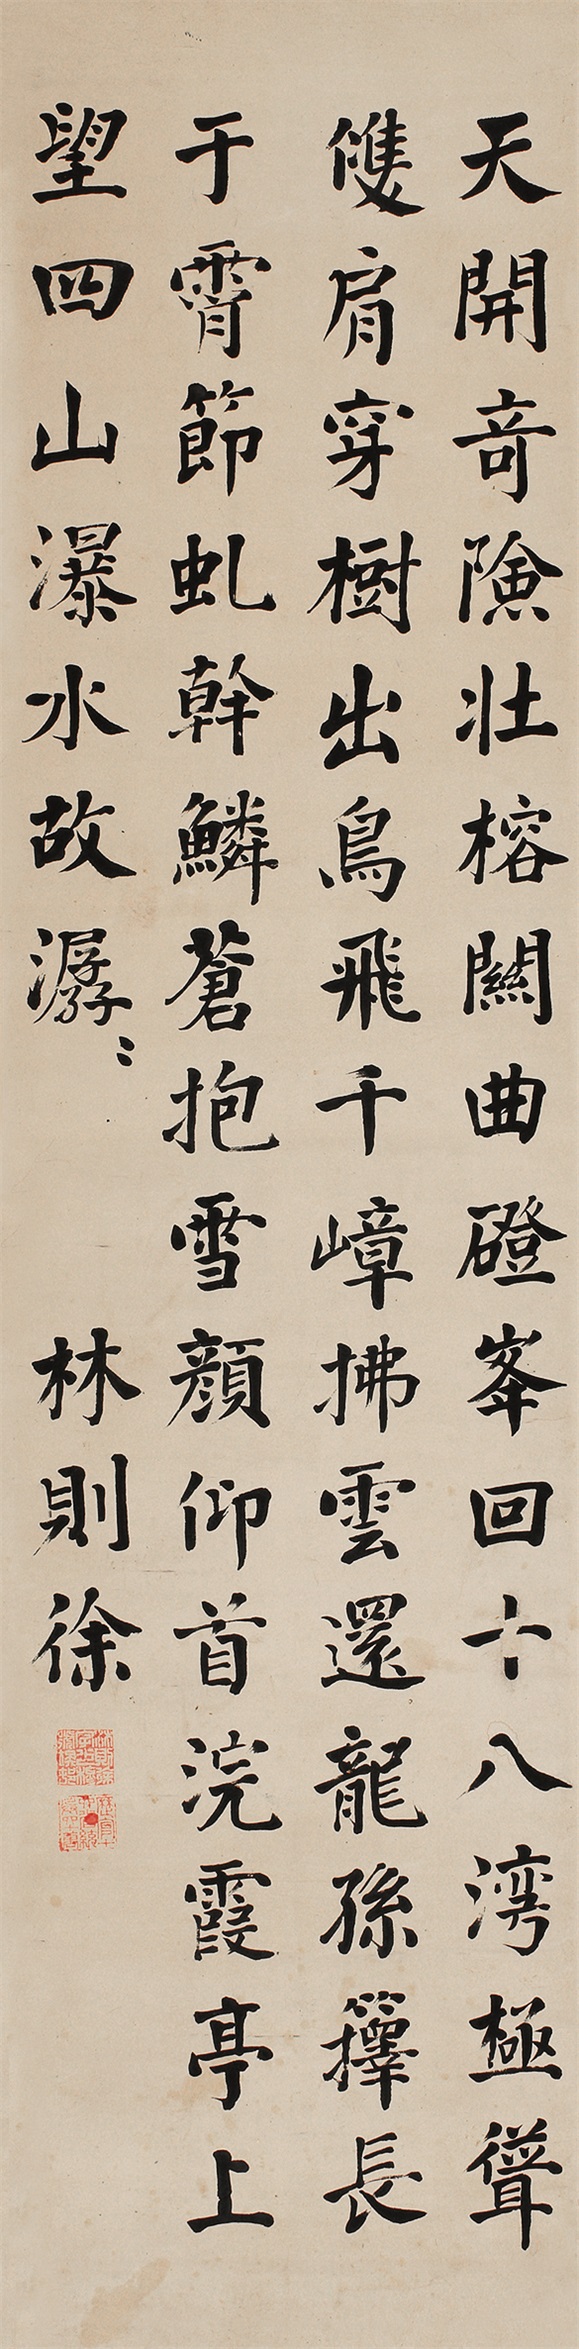 天開奇險壯榕關曲磴峯回十八湾極聳
雙肩穿樹出鳥飛千嶂拂雲還龍孫籜長
干霄節虬幹鱗蒼抱雪顔仰首浣霞亭上
望四山瀑水故潺〻 林則徐